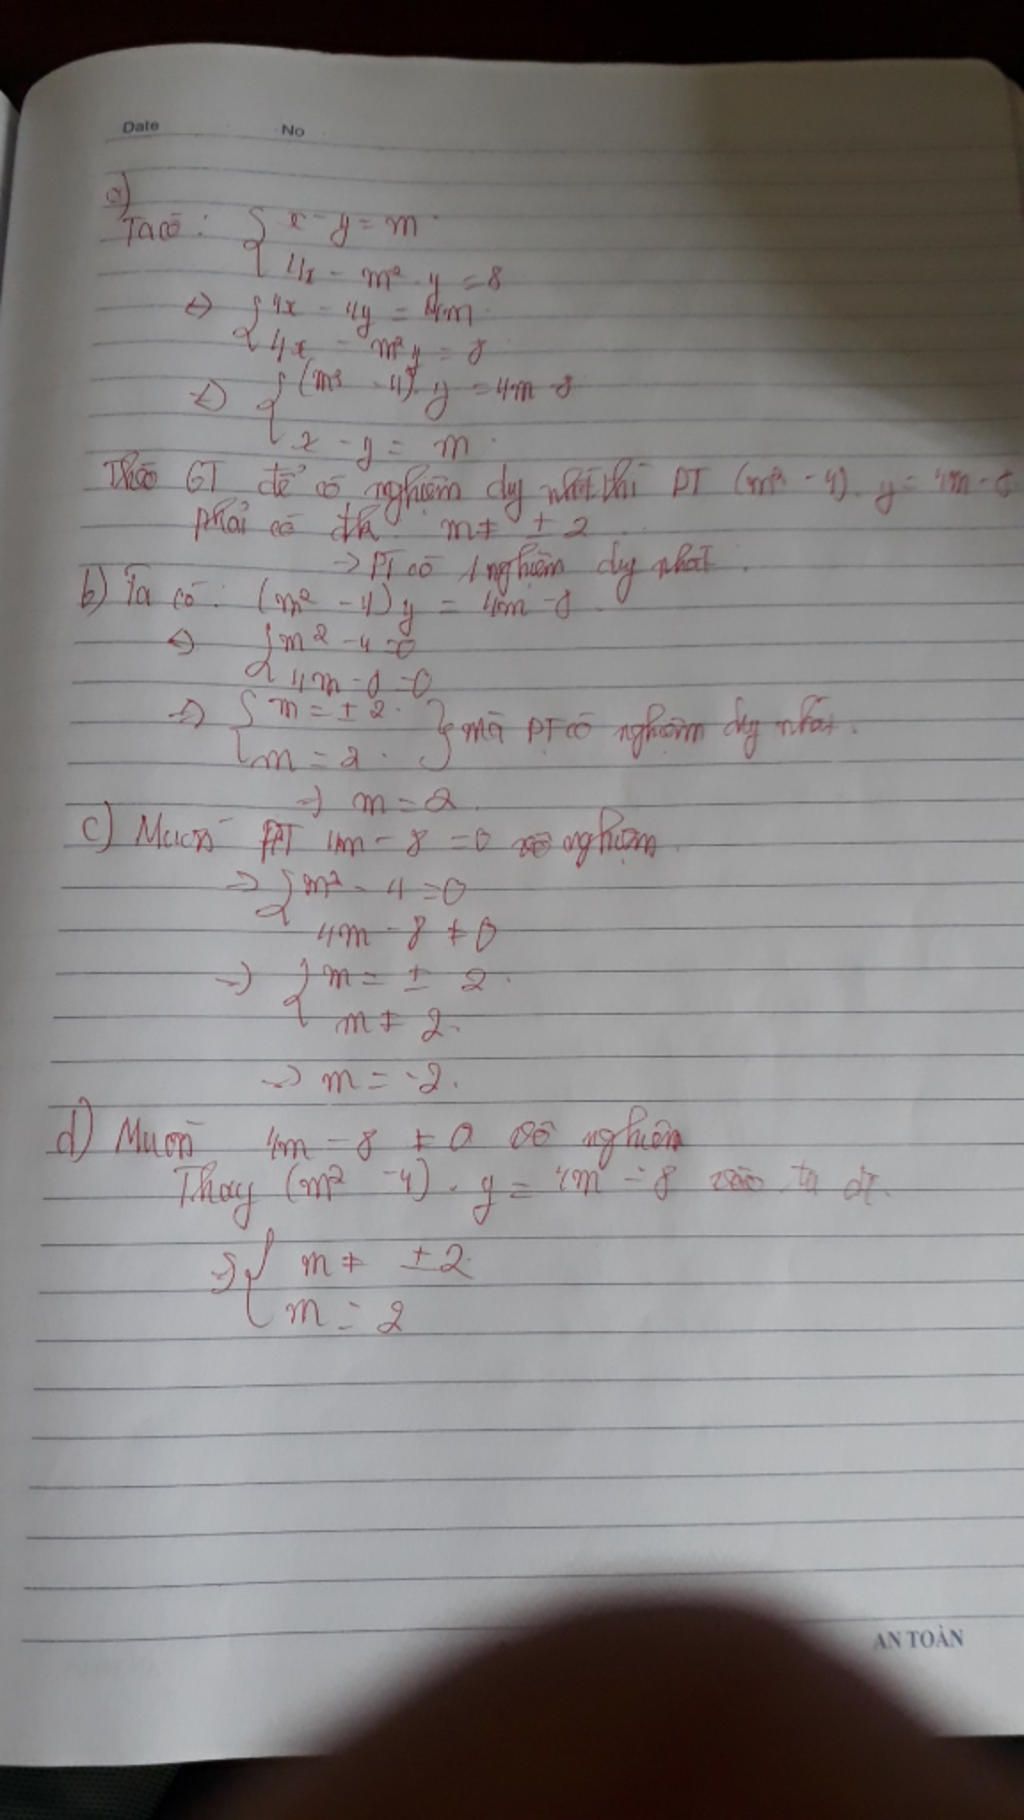 Date No
a)
Ta có: { x - y = m
4x - m² . y = 8
<=> { 4x - 4y = 4m
4x - m²y = 8
<=> { (m² - 4) . y = 4m - 8
x - y = m
Theo GT để có nghiệm duy nhất thì PT (m² - 4) . y = 4m - 8
phải có đk m ≠ ± 2
=> PT có 1 nghiệm duy nhất .
b) Ta có: (m² - 4) y = 4m - 8
<=> { m² - 4 = 0
4m - 8 = 0
=> { m = ± 2 .
m = 2 . } mà PT có nghiệm duy nhất .
=> m = 2
c) Muốn PT 4m - 8 = 0 vô nghiệm
=> { m² - 4 = 0
4m - 8 ≠ 0
=> { m = ± 2 .
m ≠ 2 .
=> m = -2 .
d) Muốn 4m - 8 ≠ 0 nghiệm
Thay (m² - 4) . y = 4m - 8 vào ta
=> { m ≠ ± 2
m = 2
AN TOÀN